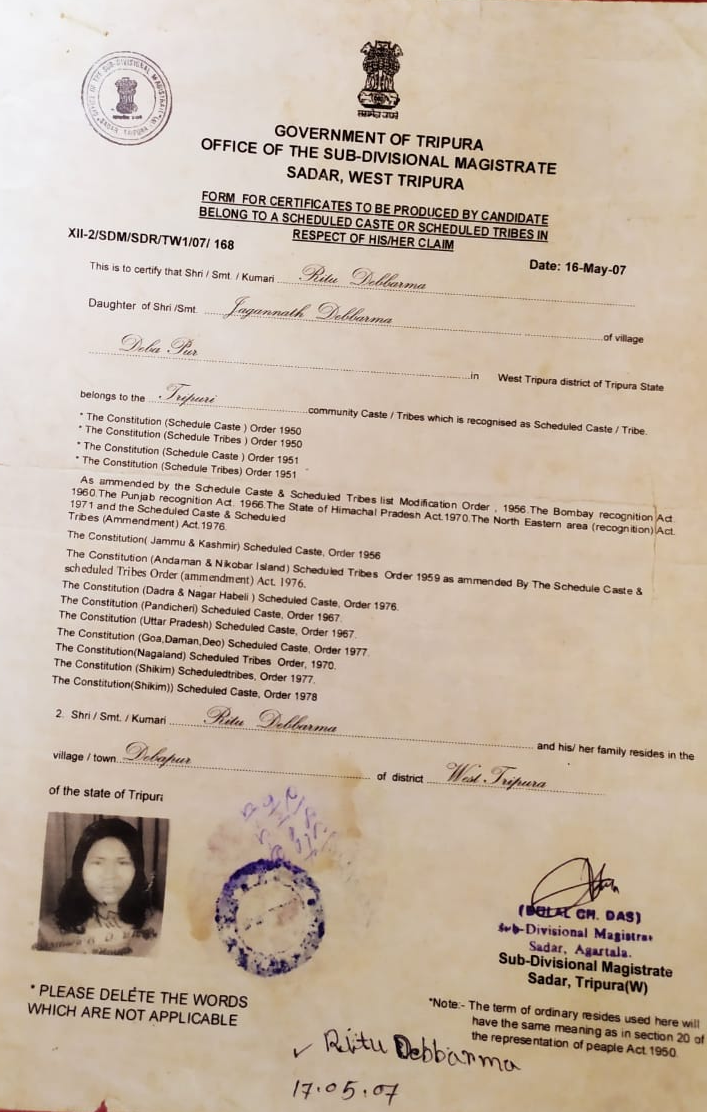 OFFICE OF THE SUB-DIVISIONAL MAGISTRATE
SADAR, TRIPURA (W)
सत्यमेव जयते
GOVERNMENT OF TRIPURA
OFFICE OF THE SUB-DIVISIONAL MAGISTRATE
SADAR, WEST TRIPURA
FORM FOR CERTIFICATES TO BE PRODUCED BY CANDIDATE
BELONG TO A SCHEDULED CASTE OR SCHEDULED TRIBES IN
RESPECT OF HIS/HER CLAIM
XII-2/SDM/SDR/TW1/07/ 168
Date: 16-May-07
This is to certify that Shri / Smt. / Kumari Ritu Debbarma
Daughter of Shri /Smt. Jagannath Debbarma of village
Deba Pur in West Tripura district of Tripura State
belongs to the Tripuri community Caste / Tribes which is recognised as Scheduled Caste / Tribe.
* The Constitution (Schedule Caste ) Order 1950
* The Constitution (Schedule Tribes ) Order 1950
* The Constitution (Schedule Caste ) Order 1951
* The Constitution (Schedule Tribes) Order 1951
As ammended by the Schedule Caste & Scheduled Tribes list Modification Order , 1956.The Bombay recognition Act.
1960.The Punjab recognition Act. 1966.The State of Himachal Pradesh Act.1970.The North Eastern area (recognition) Act.
1971 and the Scheduled Caste & Scheduled
Tribes (Ammendment) Act.1976.
The Constitution( Jammu & Kashmir) Scheduled Caste, Order 1956
The Constitution (Andaman & Nikobar Island) Scheduled Tribes Order 1959 as ammended By The Schedule Caste &
scheduled Tribes Order (ammendment) Act. 1976.
The Constitution (Dadra & Nagar Habeli ) Scheduled Caste, Order 1976.
The Constitution (Pandicheri) Scheduled Caste, Order 1967.
The Constitution (Uttar Pradesh) Scheduled Caste, Order 1967.
The Constitution (Goa,Daman,Deo) Scheduled Caste, Order 1977.
The Constitution(Nagaland) Scheduled Tribes Order, 1970.
The Constitution (Shikim) Scheduledtribes, Order 1977.
The Constitution(Shikim)) Scheduled Caste, Order 1978
2. Shri / Smt. / Kumari Ritu Debbarma and his/ her family resides in the
village / town Debapur of district West Tripura
of the state of Tripura
(DULAL CH. DAS)
Sub-Divisional Magistrate
Sadar, Agartala.
Sub-Divisional Magistrate
Sadar, Tripura(W)
* PLEASE DELETE THE WORDS
WHICH ARE NOT APPLICABLE
*Note:- The term of ordinary resides used here will
have the same meaning as in section 20 of
the representation of peaple Act.1950.
Ritu Debbarma
17.05.07